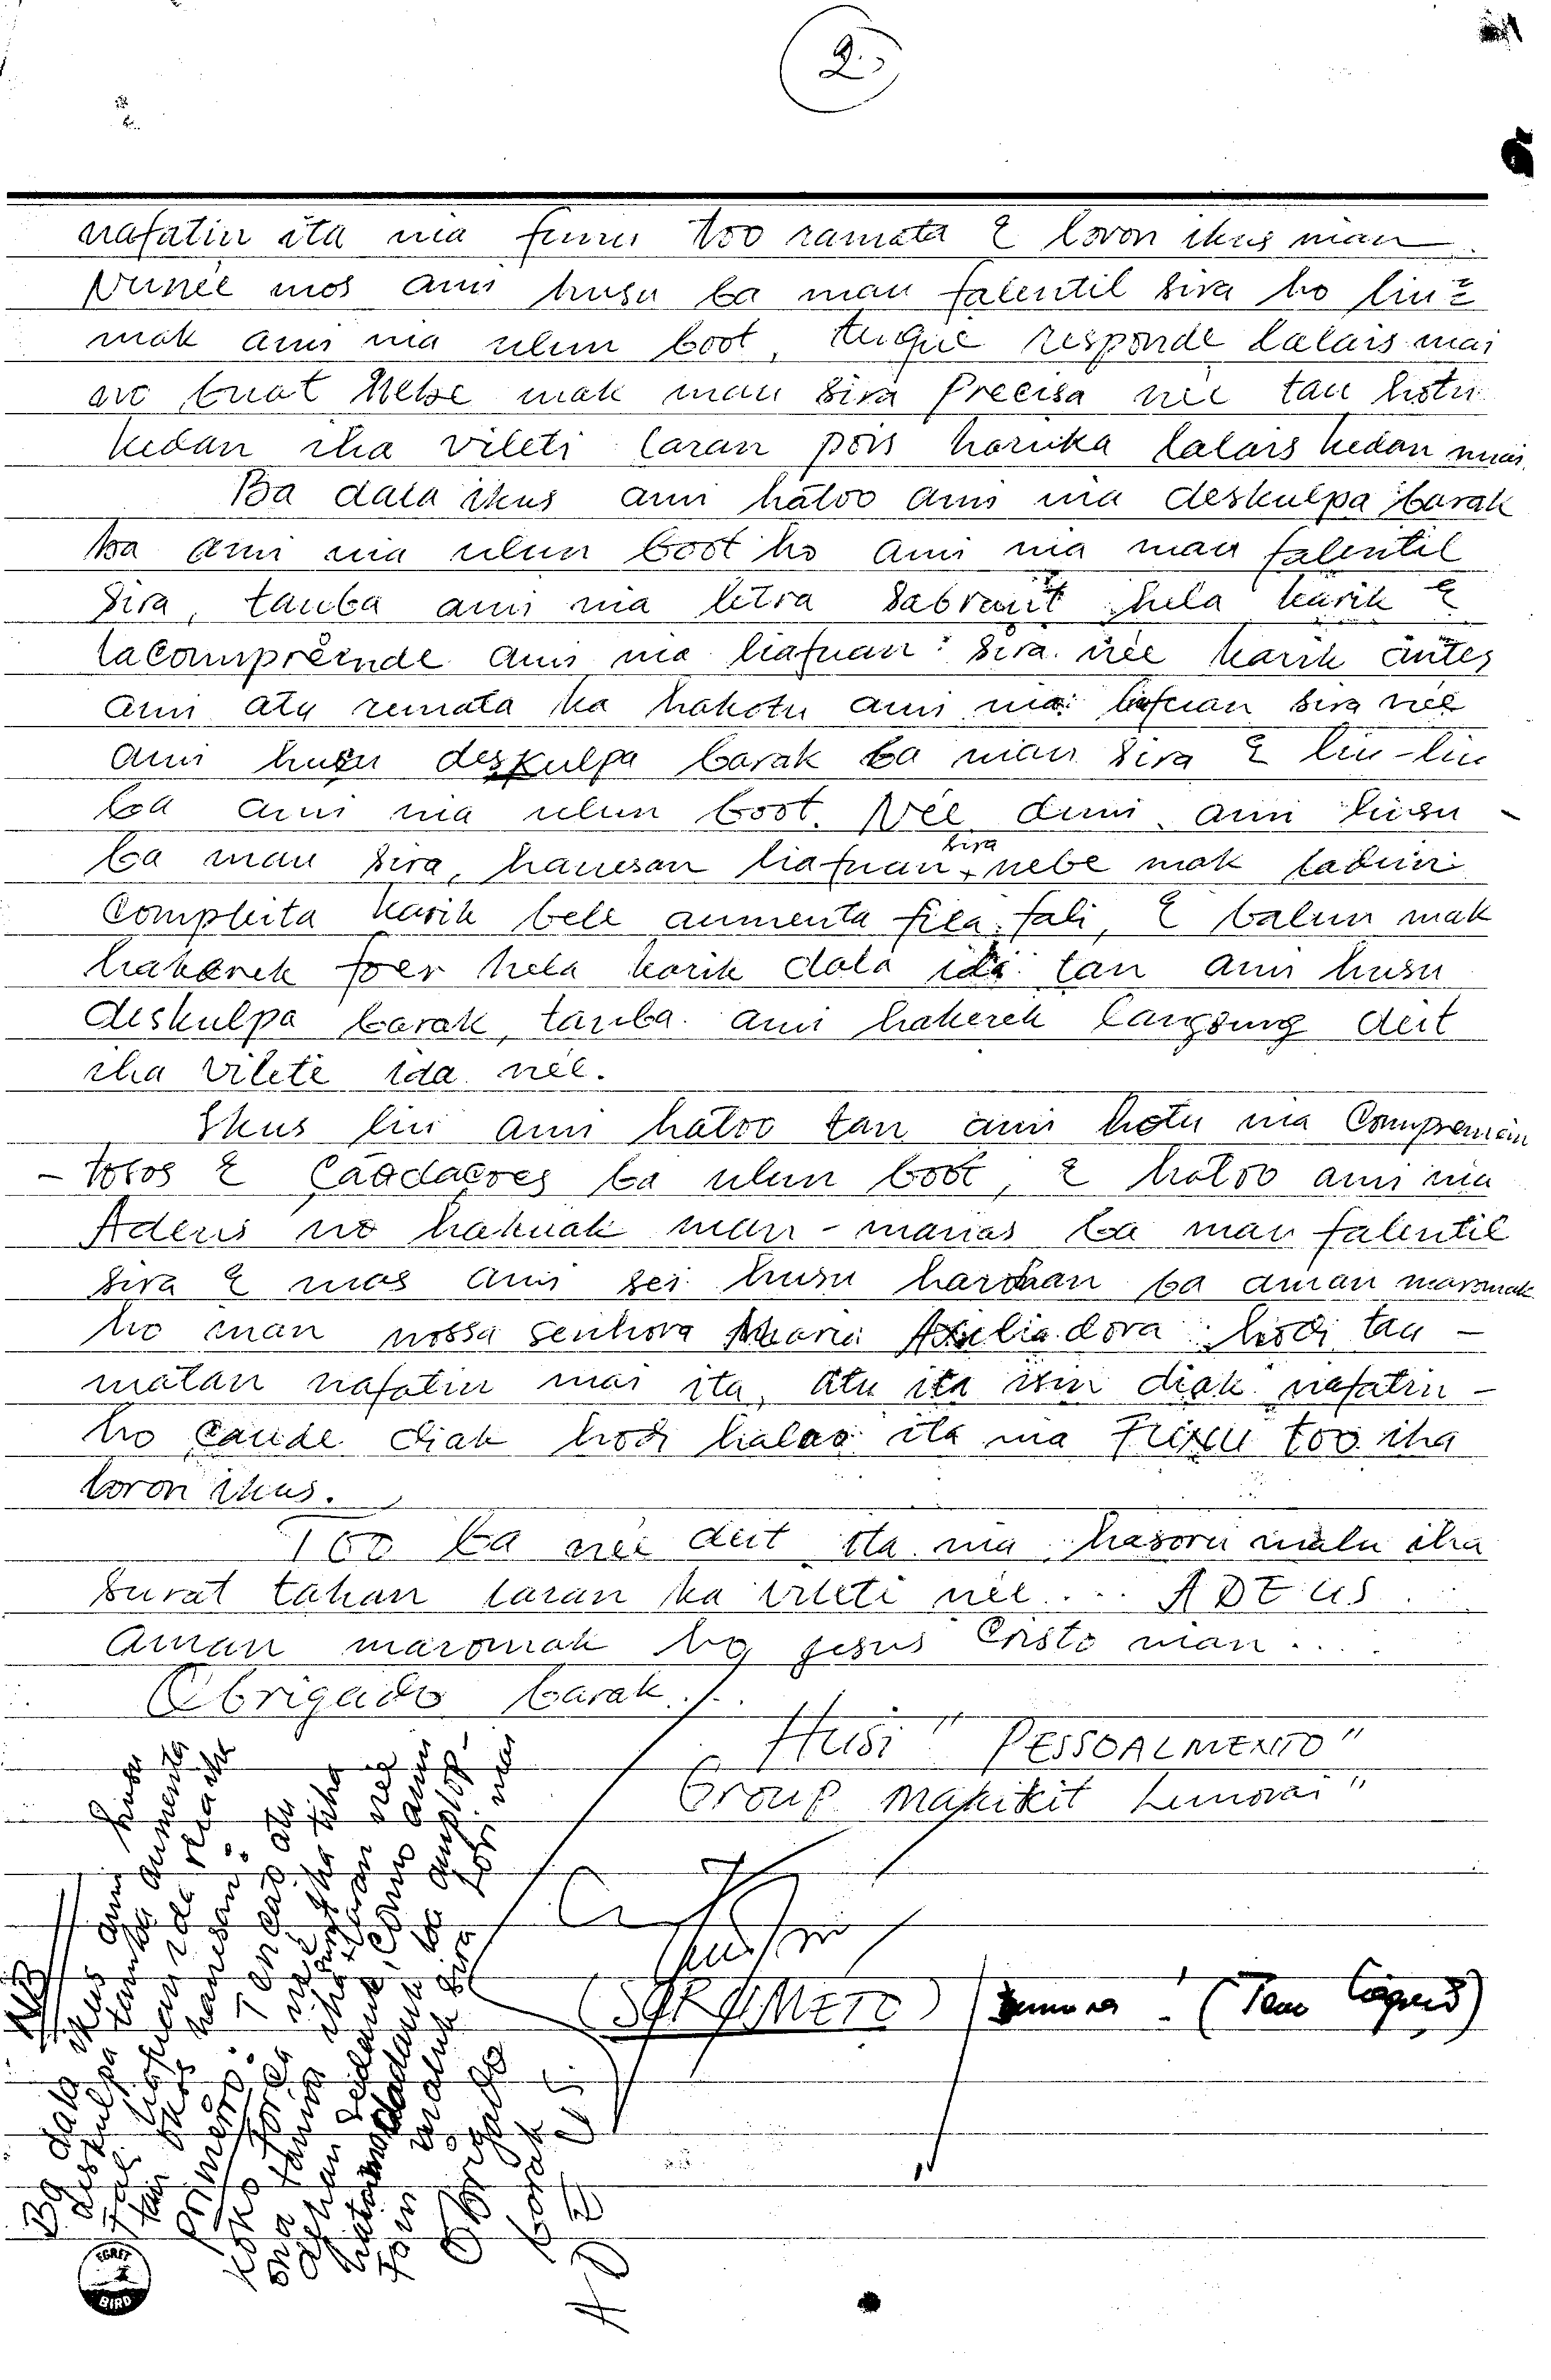 2.
nafatin ita nia funu too ramata E loron ikus nian
Nunéé mos ami husu ba mau falentil sira ho liu E
mak ami nia ulun boot, responde lalais mai
no buat Nebe mak mau sira Precisa néé tau hotu
kedan iha vileti laran pois haruka lalais kedan mai
Ba dala ikus ami hátoo ami nia deskulpa barak
ba ami nia ulun boot ho ami nia mau falentil
sira, tauba ami nia letra sabraut hela karik E
lacomprêende ami nia liafuan sira néé karik ántes
ami atu remata ka hakotu ami nia liafuan sira néé
ami husu deskulpa barak ba mau sira E liu-liu
ba ami nia ulun boot. Néé duni ami husu -
ba mau sira, hanesan liafuan sira nebe mak laduun
Compleita karik bele aumenta fila fali, E balun mak
hakerek foer hela karik dala ida tan ami husu
deskulpa barak, tauba ami hakerek langsung deit
iha vileti ida néé.
Ikus liu ami hátoo tan ami hotu nia Compremën
- tosos E Çaodacoes ba ulun boot, E hátoo ami nia
Adeus no hakuak man-manas ba mau falentil
sira E mos ami sei husu harohan ba aman maromak
ho inan nossa senhora Maria Axiliadora hodi tau -
matan nafatin mai ita, atu ita isin diak nafatin -
ho çaude diak hodi halao ita nia Funu too iha
loron ikus.
Too ba néé deit ita nia hasoru malu iha
surat tahan laran ka vileti néé ... ADEUS
aman maromak ho jesus Cristo nian ...
Obrigado barak ...
Husi " PESSOALMENTO "
Group Makikit Lumorai "
(SARAMETO)
NB
Ba dala ikus ami husu
deskulpa tamba aumenta
fali liafuan ida rua iha
tan okos hanesan:
primeiro: Tencao atu
koko forca néé iha tiha
ona tamba iha laran néé
Obrigado
barak
ADEUS
EGRET
BIRD